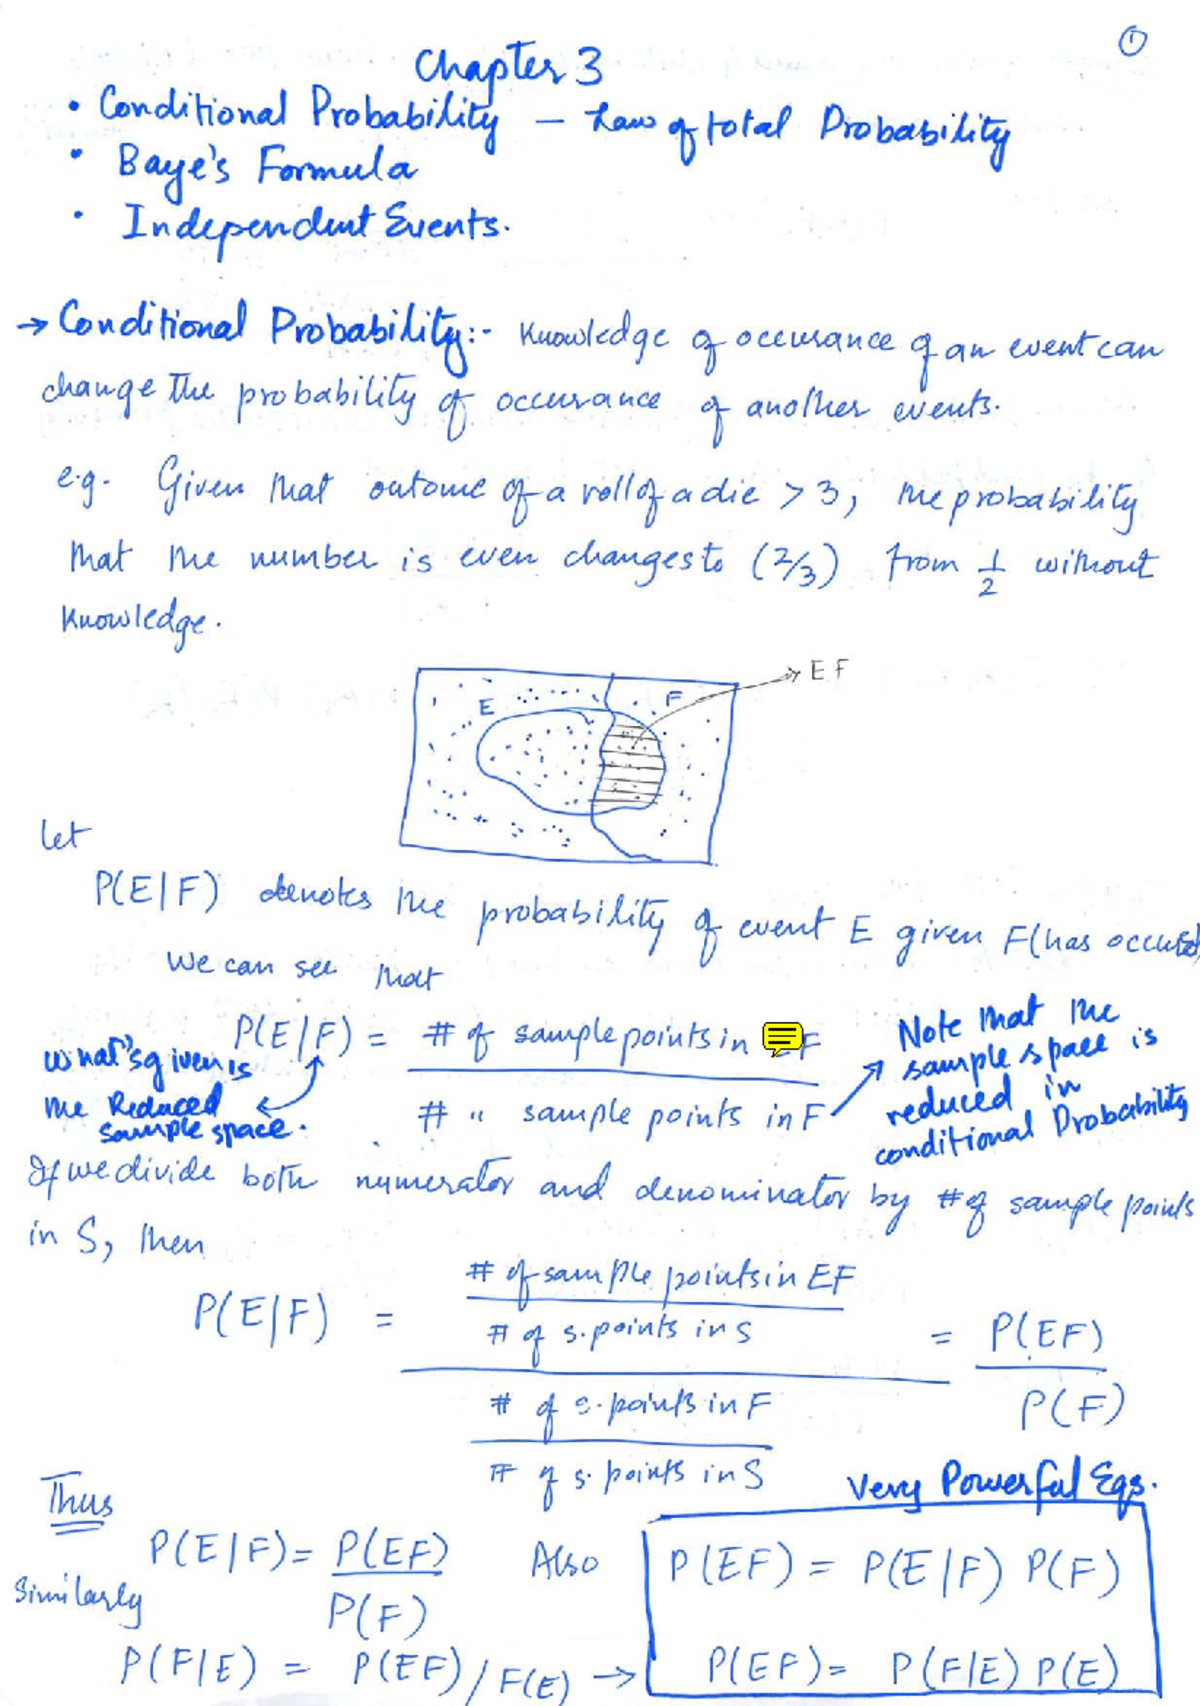 1
Chapter 3
• Conditional Probability – Law of total Probability
• Baye's Formula
• Independent Events.
→ Conditional Probability:- Knowledge of occurance of an event can
change the probability of occurance of another events.
e.g. Given that outome of a roll of a die > 3, the probability
that the number is even changes to (2/3) from 1/2 without
knowledge.
→ EF
E F
let
P(E|F) denotes the probability of event E given F (has occured)
we can see that
P(E|F) = # of sample points in F
# " sample points in F
What's given is
the Reduced
sample space.
Note that the
sample space is
reduced in
conditional Probability
If we divide both numerator and denominator by # of sample points
in S, then
P(E|F) = # of sample points in EF
# of s. points in S
# of s. points in F
# of s. points in S
= P(EF)
P(F)
Thus
P(E|F) = P(EF)
P(F)
Also
Very Powerful Eqs.
P(EF) = P(E|F) P(F)
Similarly
P(F|E) = P(EF) / F(E) →
P(EF) = P(F|E) P(E)